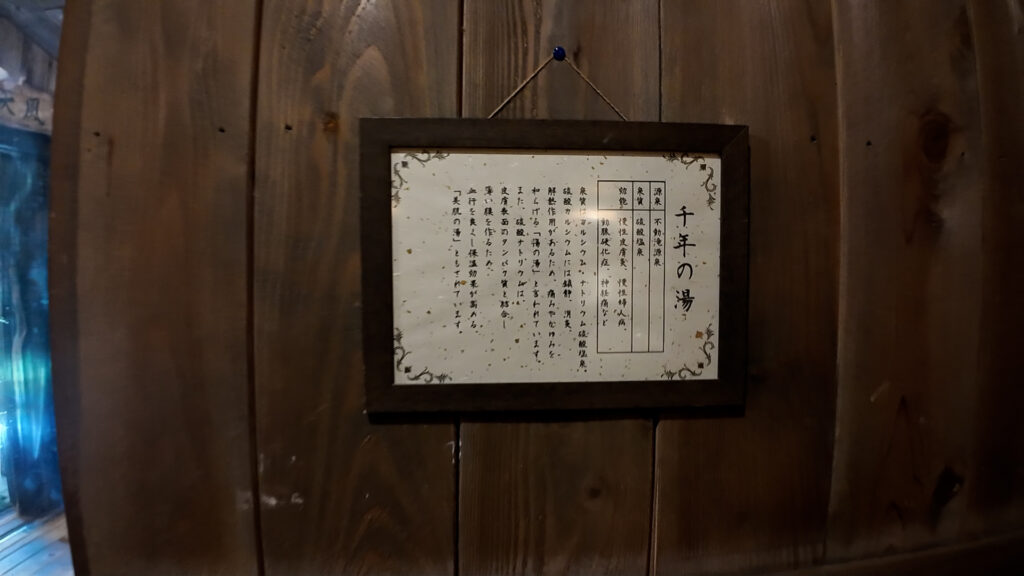 千年の湯
源泉 不動滝源泉
泉質 硫酸塩泉
効能 慢性皮膚炎、慢性婦人病、
動脈硬化症、神経痛など
泉質はカルシウム・ナトリウム硫酸塩泉
硫酸カルシウムには鎮静、消炎、
解熱作用があるため、痛みやかゆみを
和らげる「傷の湯」と言われています。
また、硫酸ナトリウムは、
皮膚表面のタンパク質と結合し
薄い膜を作るため、
血行を良くし保温効果が高める
「美肌の湯」ともされています。